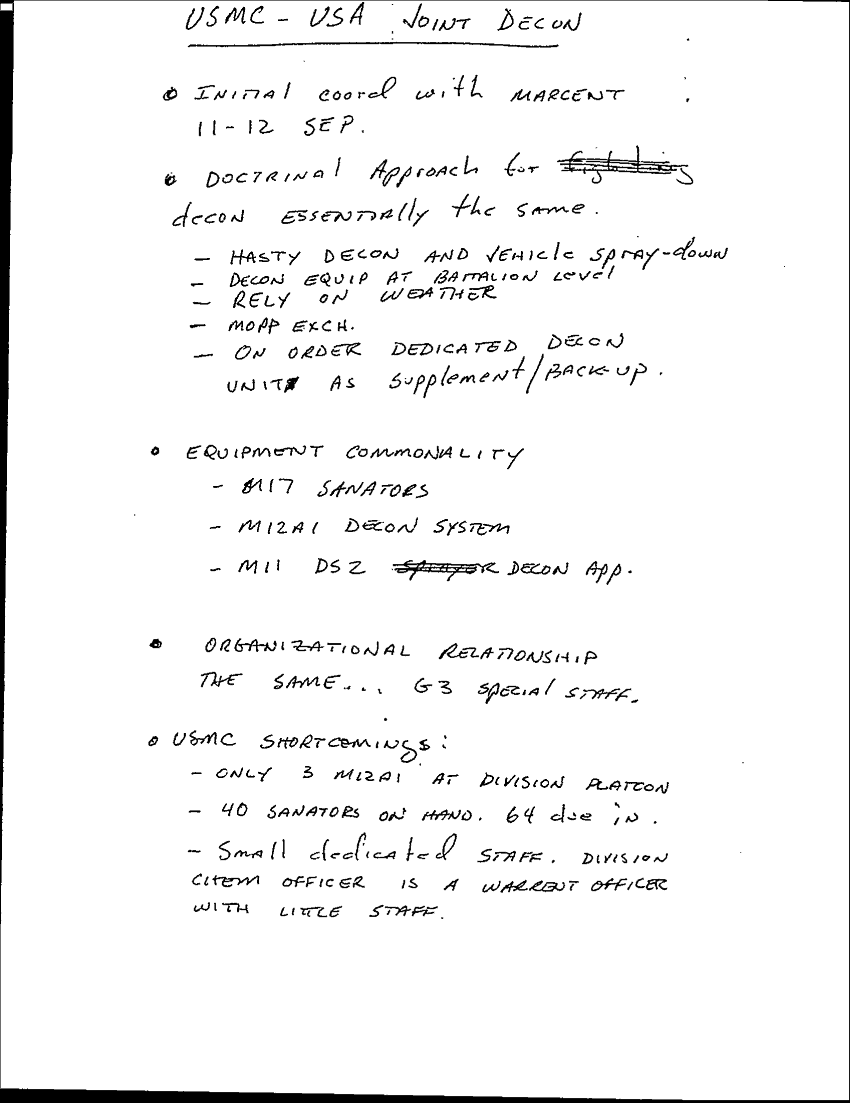 USMC - USA JOINT DECON
• INITIAl coord with MARCENT
11-12 SEP.
• DOCTRINAl APPROACH for fighting
decon ESSENTIAlly the SAME.
- HASTY DECON AND VEHIclE SPRAY-down
- DECON EQUIP AT BATTALION LEVEl
- RELY ON WEATHER
- MOPP EXCH.
- ON ORDER DEDICATED DECON
UNIT AS SupplemENT/BACK-UP.
• EQUIPMENT COMMONALITY
- M17 SANATORS
- M12A1 DECON SYSTEM
- M11 DS2 SPRAYER DECON App.
• ORGANIZATIONAL RELATIONSHIP
THE SAME... G3 SPECIAl STAFF.
• USMC SHORTCOMINGS:
- ONLY 3 M12A1 AT DIVISION PLATOON
- 40 SANATORS ON HAND. 64 due in.
- SmAll dedicated STAFF. DIVISION
CHEM OFFICER IS A WARRENT OFFICER
WITH LITTLE STAFF.